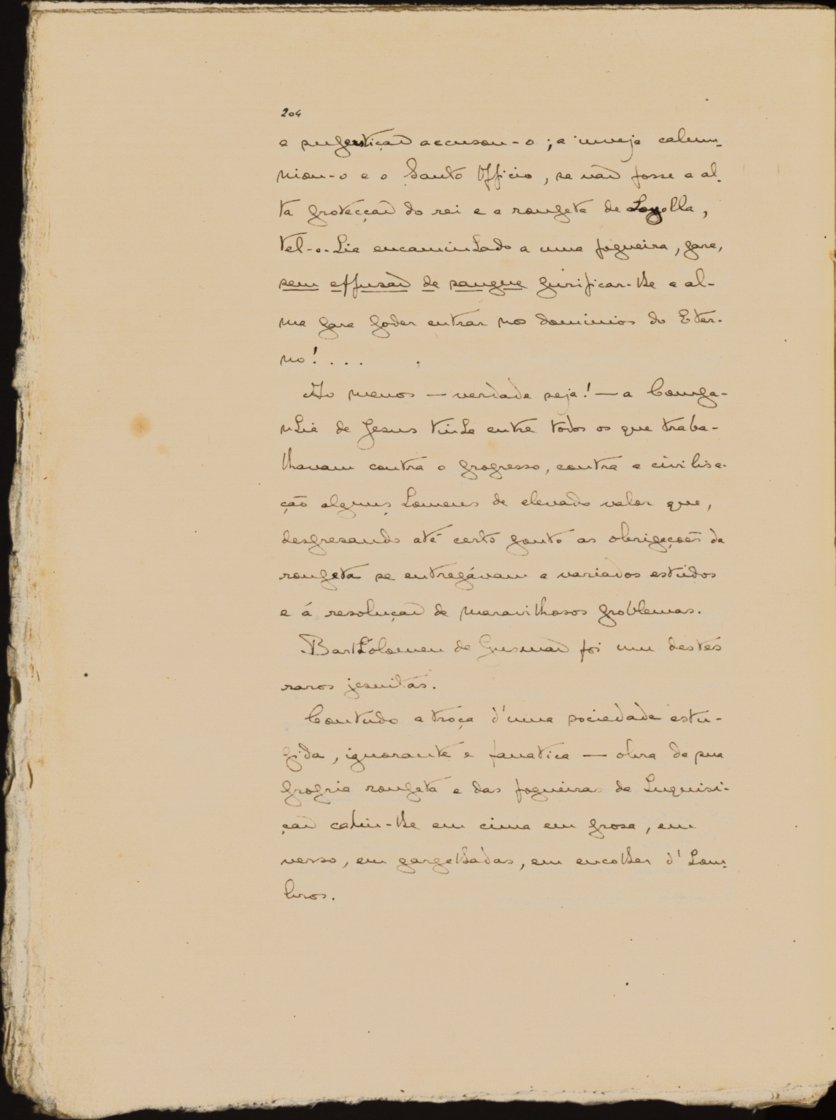 204
a superstiçaõ accusou-o ; a inveja calum-
niou-o e o Santo Officio, se naõ fosse a al-
ta protecçaõ do rei e a roupeta de Loyolla,
tel-o-hia encaminhado a uma fogueira, para,
sem effusaõ de sangue purificar-lhe a al-
ma para poder entrar nos dominios do Eter-
no! . . .
Ao menos — verdade seja! — a Compa-
nhia de Jesus tinha entre todos os que traba-
lhavam contra o progresso, contra a civilisa-
ção alguns homens de elevado valor que,
despresando até certo ponto as obrigações da
roupeta se entregávam a variados estudos
e á resoluçaõ de maravilhosos problemas.
Bartholomeu de Gusmaõ foi um destes
raros jesuitas.
Comtudo a troça d'uma sociedade estu-
pida, ignorante e fanatica — obra da sua
propria roupeta e das fogueiras da Inquisi-
çaõ cahiu-lhe em cima em prosa, em
verso, em gargalhadas, em encolher d'hom-
bros.